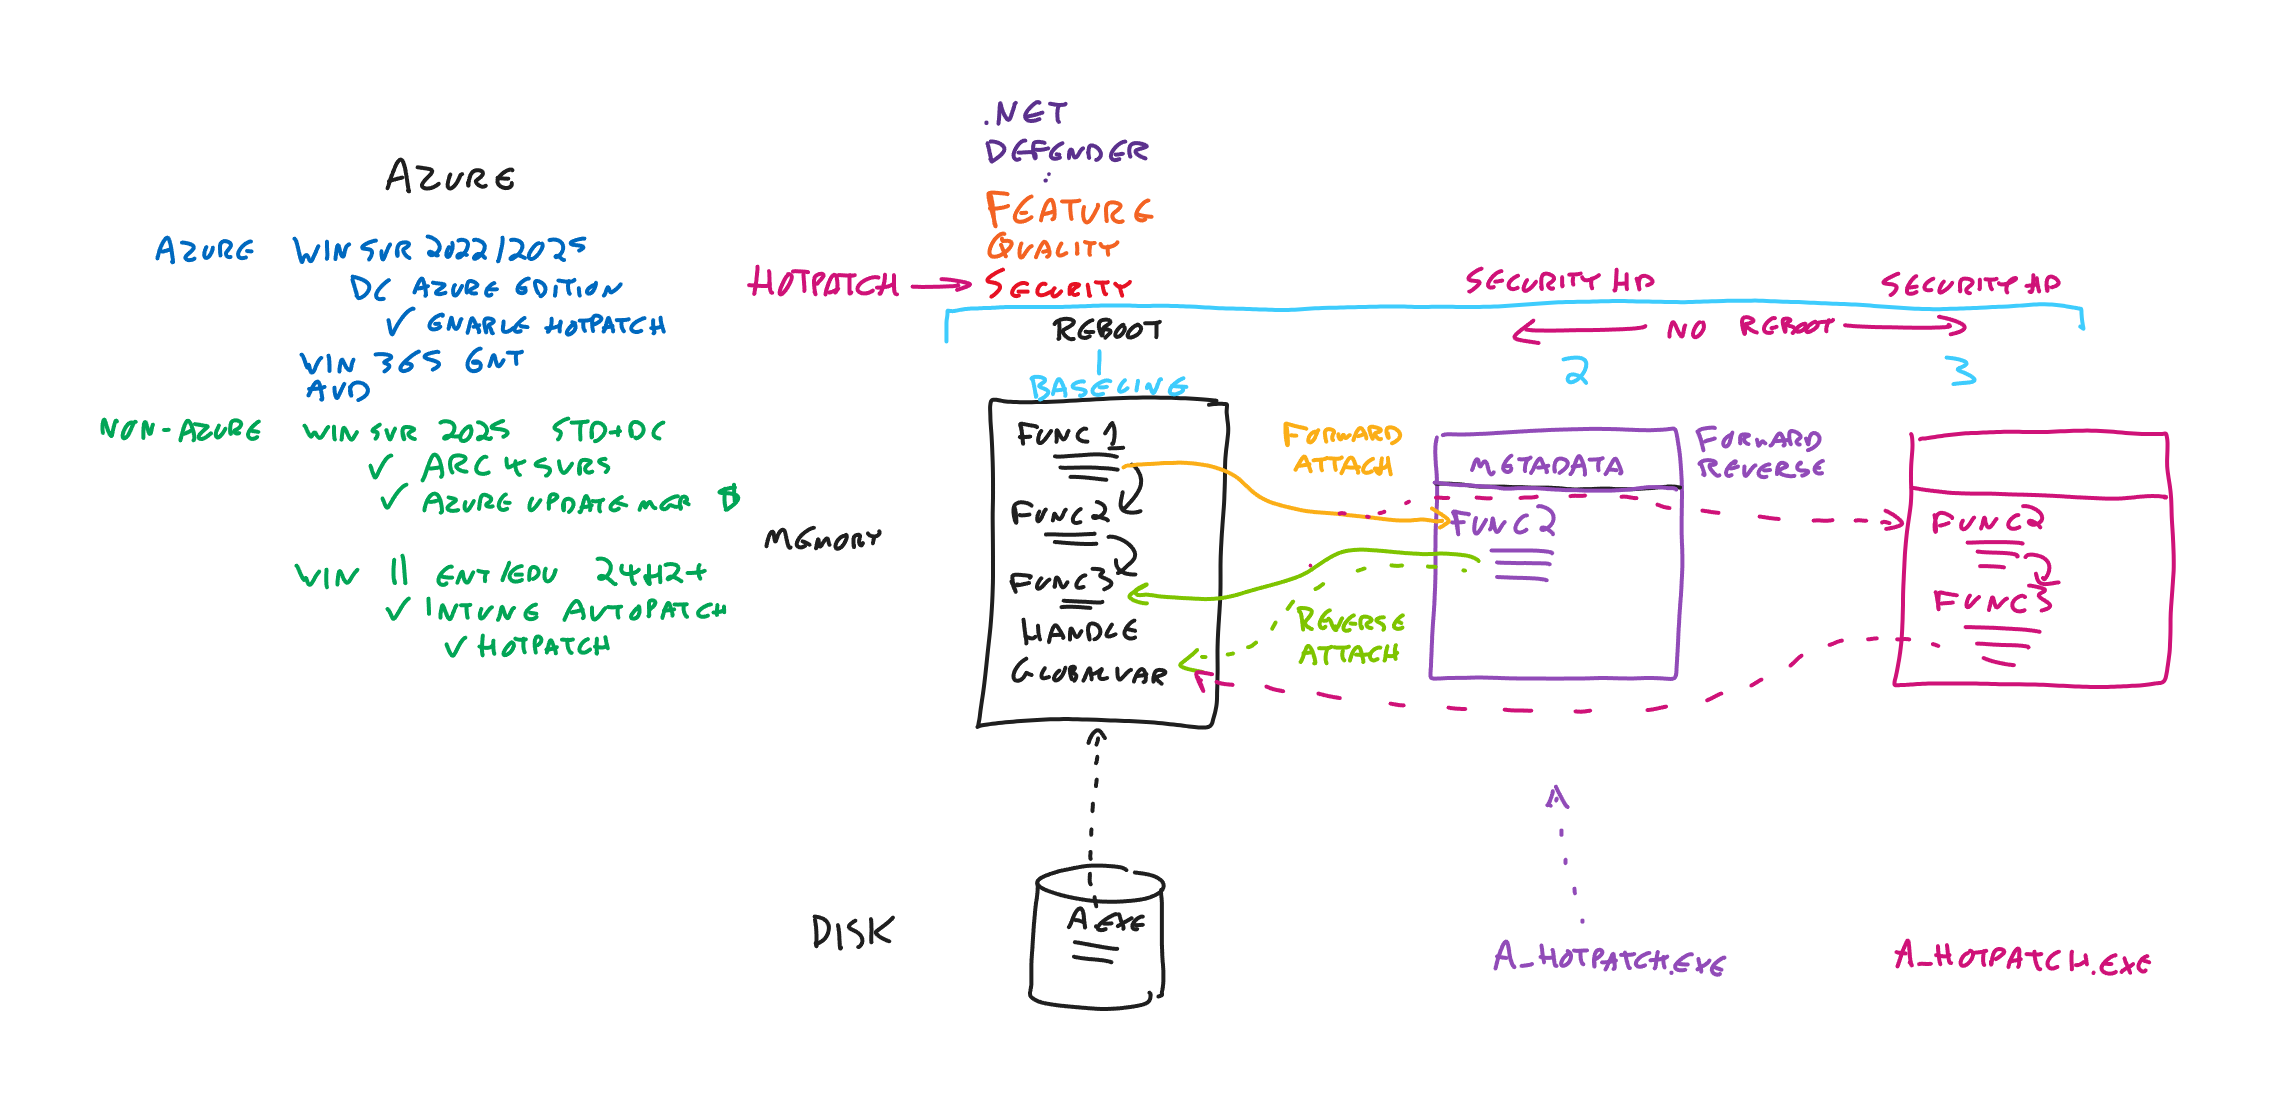 AZURE
AZURE WIN SVR 2022/2025
DC AZURE EDITION
✓ ENABLE HOTPATCH
WIN 365 ENT
AVD
NON-AZURE WIN SVR 2025 STD+DC
✓ ARC 4 SVRS
✓ AZURE UPDATE MGR $
WIN 11 ENT/EDU 24H2+
✓ INTUNE AUTOPATCH
✓ HOTPATCH
.NET
DEFENDER
:
FEATURE
QUALITY
HOTPATCH → SECURITY
REBOOT
BASELINE
SECURITY HP
SECURITY HP
← NO REBOOT →
2
3
MEMORY
FUNC 1
FUNC2
FUNC3
HANDLE
GLOBALVAR
FORWARD
ATTACH
REVERSE
ATTACH
METADATA
FUNC2
FORWARD
REVERSE
FUNC2
FUNC3
DISK
A.EXE
A_HOTPATCH.EXE
A_HOTPATCH.EXE